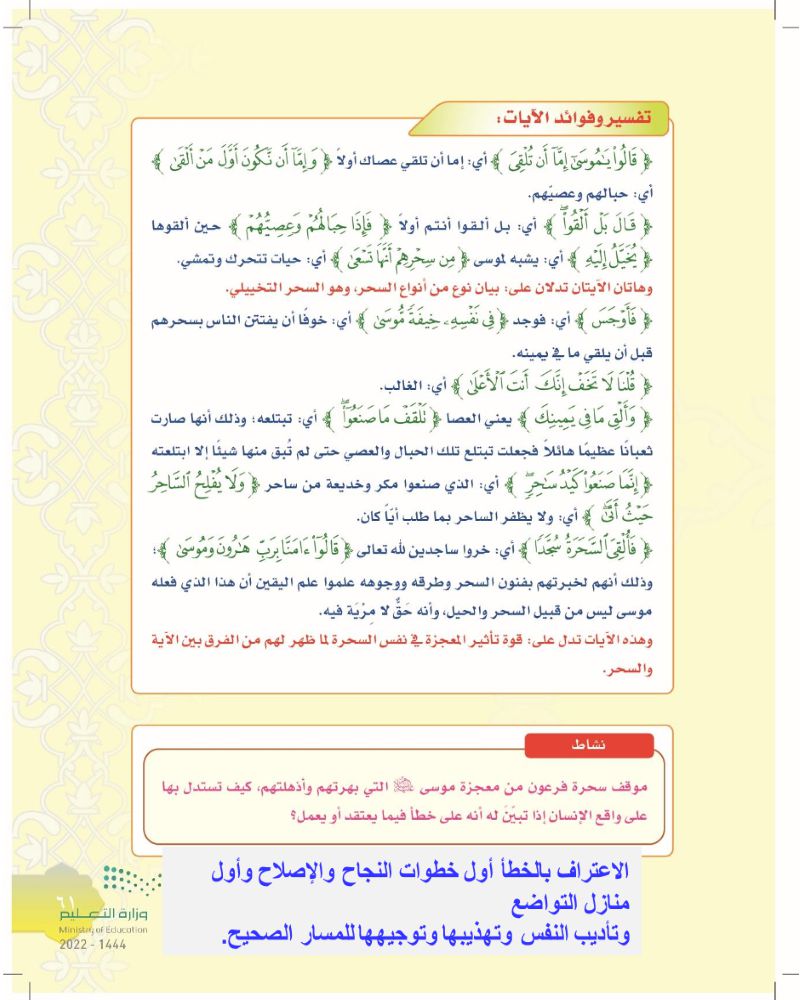 تفسير وفوائد الآيات:
﴿ قَالُوا۟ يَـٰمُوسَىٰٓ إِمَّآ أَن تُلْقِىَ ﴾ أي: إما أن تلقي عصاك أولاً ﴿ وَإِمَّآ أَن نَّكُونَ أَوَّلَ مَنْ أَلْقَىٰ ﴾
أي: حبالهم وعصيّهم.
﴿ قَالَ بَلْ أَلْقُوا۟ۖ ﴾ أي: بل ألقوا أنتم أولاً ﴿ فَإِذَا حِبَالُهُمْ وَعِصِيُّهُمْ ﴾ حين ألقوها
﴿ يُخَيَّلُ إِلَيْهِ ﴾ أي: يشبه لموسى ﴿ مِن سِحْرِهِمْ أَنَّهَا تَسْعَىٰ ﴾ أي: حيات تتحرك وتمشي.
وهاتان الآيتان تدلان على: بيان نوع من أنواع السحر، وهو السحر التخييلي.
﴿ فَأَوْجَسَ ﴾ أي: فوجد ﴿ فِى نَفْسِهِۦ خِيفَةً مُّوسَىٰ ﴾ أي: خوفًا أن يفتتن الناس بسحرهم
قبل أن يلقي ما في يمينه.
﴿ قُلْنَا لَا تَخَفْ إِنَّكَ أَنتَ ٱلْأَعْلَىٰ ﴾ أي: الغالب.
﴿ وَأَلْقِ مَا فِى يَمِينِكَ ﴾ يعني العصا ﴿ تَلْقَفْ مَا صَنَعُوٓا۟ۖ ﴾ أي: تبتلعه؛ وذلك أنها صارت
ثعبانًا عظيمًا هائلاً فجعلت تبتلع تلك الحبال والعصي حتى لم تُبق منها شيئًا إلا ابتلعته
﴿ إِنَّمَا صَنَعُوا۟ كَيْدُ سَـٰحِرٍۖ ﴾ أي: الذي صنعوا مكر وخديعة من ساحر ﴿ وَلَا يُفْلِحُ ٱلسَّاحِرُ
حَيْثُ أَتَىٰ ﴾ أي: ولا يظفر الساحر بما طلب أيًا كان.
﴿ فَأُلْقِىَ ٱلسَّحَرَةُ سُجَّدًا ﴾ أي: خروا ساجدين لله تعالى ﴿ قَالُوٓا۟ ءَامَنَّا بِرَبِّ هَـٰرُونَ وَمُوسَىٰ ﴾؛
وذلك أنهم لخبرتهم بفنون السحر وطرقه ووجوهه علموا علم اليقين أن هذا الذي فعله
موسى ليس من قبيل السحر والحيل، وأنه حَقٌّ لا مِرْيَة فيه.
وهذه الآيات تدل على: قوة تأثير المعجزة في نفس السحرة لما ظهر لهم من الفرق بين الآية
والسحر.
نشاط
موقف سحرة فرعون من معجزة موسى ﷺ التي بهرتهم وأذهلتهم، كيف تستدل بها
على واقع الإنسان إذا تبيّنَ له أنه على خطأ فيما يعتقد أو يعمل؟
الاعتراف بالخطأ أول خطوات النجاح والإصلاح وأول
منازل التواضع
وتأديب النفس وتهذيبها وتوجيهها للمسار الصحيح.
٦١
وزارة التعـليم
Ministry of Education
2022 - 1444